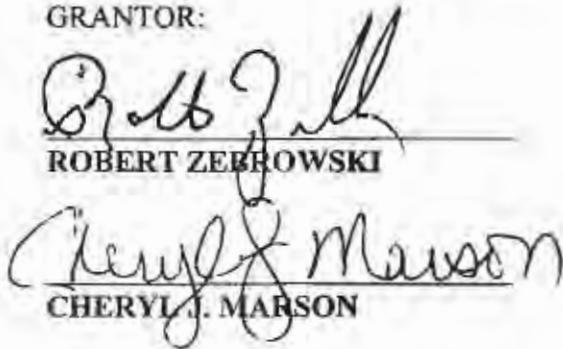 GRANTOR:
ROBERT ZEBROWSKI
Cheryl J Marson
CHERYL J. MARSON